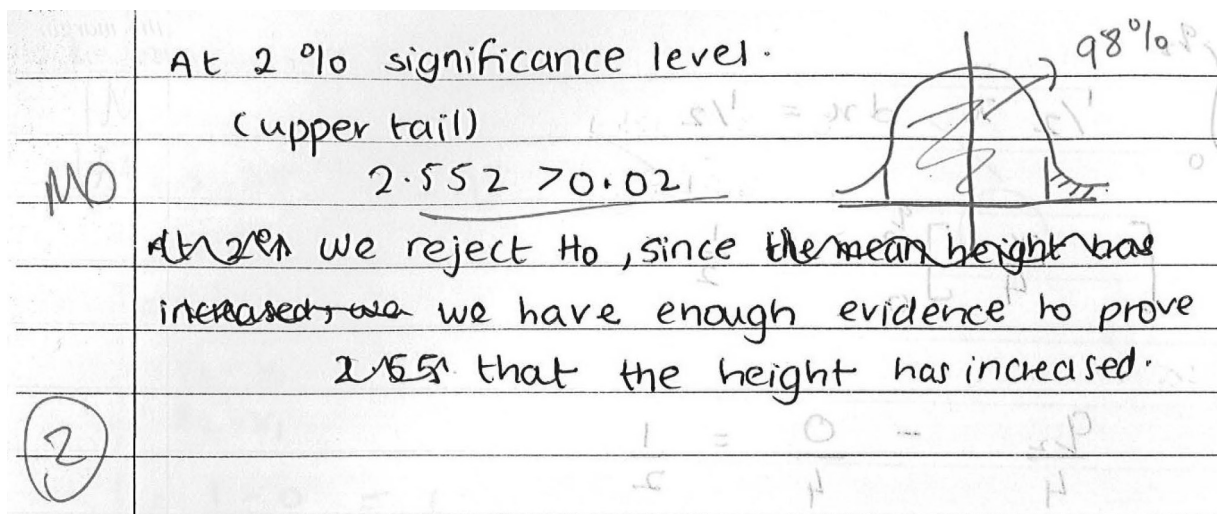 At 2% significance level.
98%
(upper tail)
M0
2.552 > 0.02
we reject H0, since the mean height has
increased, we have enough evidence to prove
2.55 that the height has increased.
2